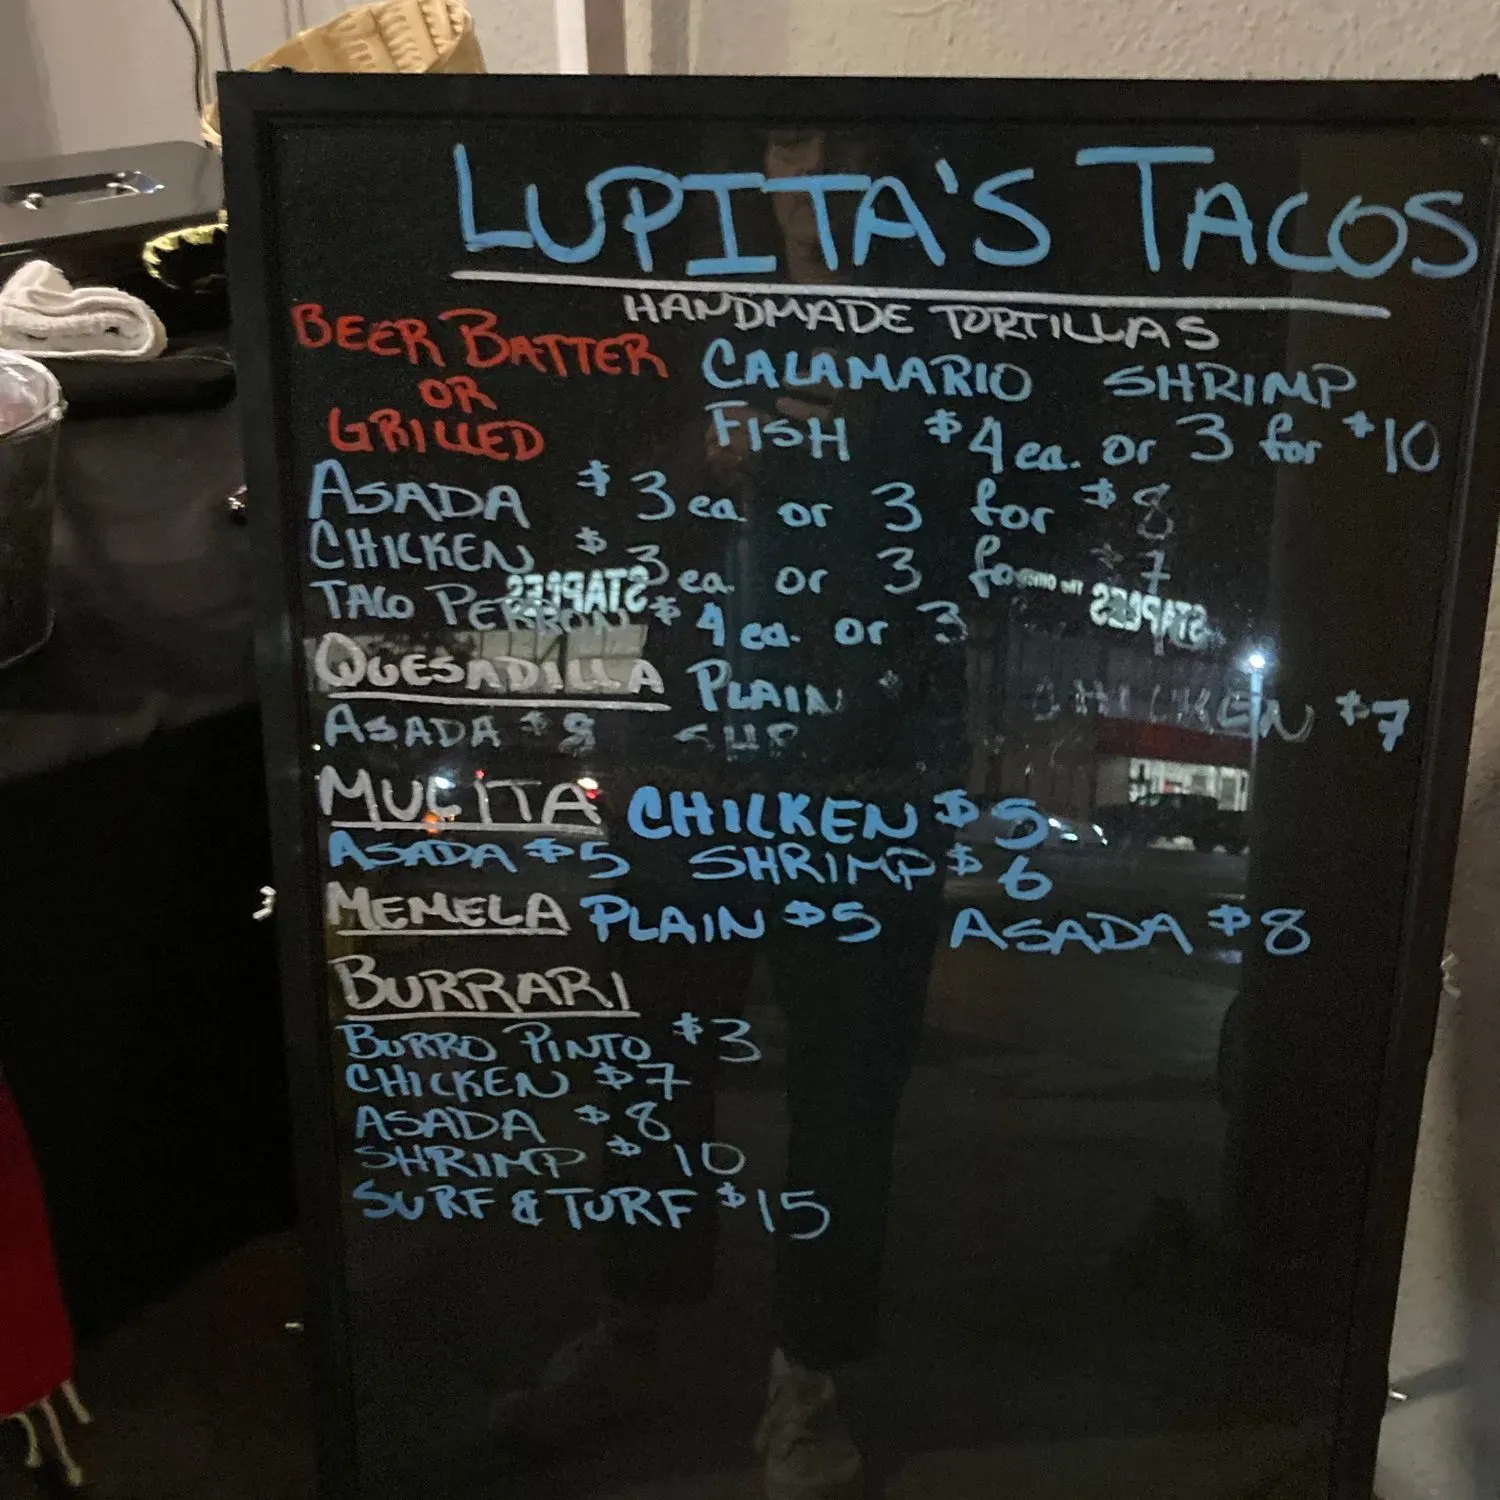 LUPITA'S TACOS
HANDMADE TORTILLAS
BEER BATTER
OR
GRILLED
CALAMARIO SHRIMP
FISH $4 ea. or 3 for $10
ASADA $3 ea or 3 for $8
CHICKEN $3 ea or 3 for 7
TACO PERRON $4 ea. or 3
STAPLES
STAPLES
QUESADILLA PLAIN CHICKEN $7
ASADA $8
MULITA CHICKEN $5
ASADA $5 SHRIMP $6
MEMELA PLAIN $5 ASADA $8
BURRARI
BURRO PINTO $3
CHICKEN $7
ASADA $8
SHRIMP $10
SURF & TURF $15